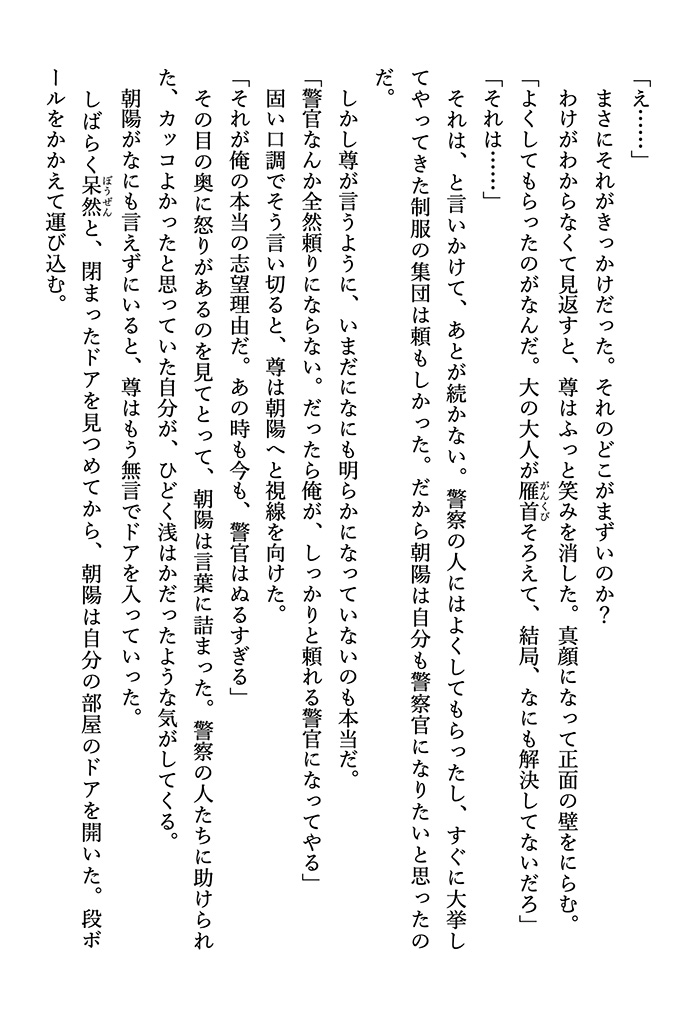 「え……」
まさにそれがきっかけだった。それのどこがまずいのか？
わけがわからなくて見返すと、尊はふっと笑みを消した。真顔になって正面の壁をにらむ。
「よくしてもらったのがなんだ。大の大人が雁首そろえて、結局、なにも解決してないだろ」
「それは……」
それは、と言いかけて、あとが続かない。警察の人にはよくしてもらったし、すぐに大挙し
てやってきた制服の集団は頼もしかった。だから朝陽は自分も警察官になりたいと思ったの
だ。
しかし尊が言うように、いまだになにも明らかになっていないのも本当だ。
「警官なんか全然頼りにならない。だったら俺が、しっかりと頼れる警官になってやる」
固い口調でそう言い切ると、尊は朝陽へと視線を向けた。
「それが俺の本当の志望理由だ。あの時も今も、警官はぬるすぎる」
その目の奥に怒りがあるのを見てとって、朝陽は言葉に詰まった。警察の人たちに助けられ
た、カッコよかったと思っていた自分が、ひどく浅はかだったような気がしてくる。
朝陽がなにも言えずにいると、尊はもう無言でドアを入っていった。
しばらく呆然と、閉まったドアを見つめてから、朝陽は自分の部屋のドアを開いた。段ボ
ールをかかえて運び込む。
がんくび
ぼうぜん